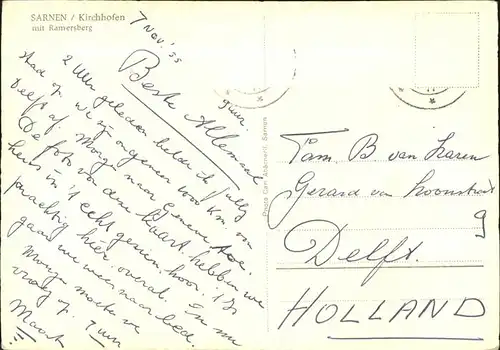 SARNEN / Kirchhofen
mit Ramersberg
7 Nov. '55
9 uur.
Beste Allemaal
2 Uur geleden belde ik jullie
stad op. We zijn ongeveer 1000 km. van
Delft af. Morgen naar Geneve toe.
De foto van deze kaart hebben we
heus in 't echt gezien, hoor. 't Is
prachtig hier overal. En nu
gaan we weer naar bed.
Morgen moeten we
vroeg op. 7 uur
Maart
Photo Carl Abächerli, Sarnen
Fam. B van Haren
Gerard van Loonstraat
9
Delft.
HOLLAND